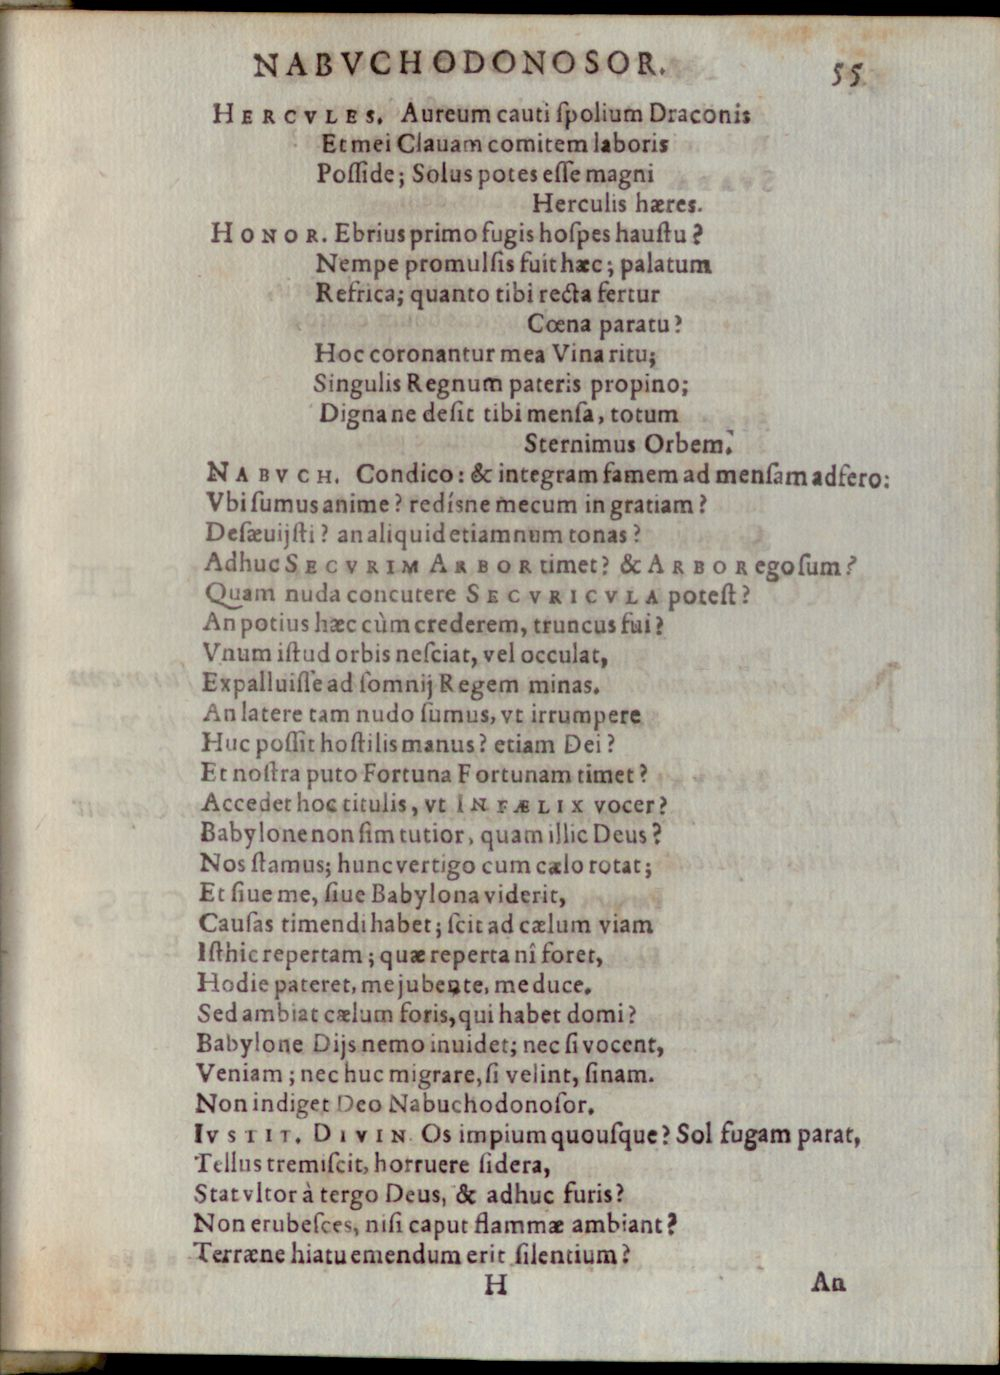 NABVCHODONOSOR. 55
HERCVLES. Aureum cauti ſpolium Draconis
Et mei Clauam comitem laboris
Poſſide; Solus potes eſſe magni
Herculis hæres.
HONOR. Ebrius primo fugis hoſpes hauſtu?
Nempe promulſis fuit hæc; palatum
Refrica; quanto tibi recta fertur
Cœna paratu?
Hoc coronantur mea Vina ritu;
Singulis Regnum pateris propino;
Digna ne deſit tibi menſa, totum
Sternimus Orbem.
NABVCH. Condico: & integram famem ad menſam adfero:
Vbi ſumus anime? redíſne mecum in gratiam?
Deſæuijſti? an aliquid etiamnum tonas?
Adhuc SECVRIM ARBOR timet? & ARBOR ego ſum?
Quam nuda concutere SECVRICVLA poteſt?
An potius hæc cùm crederem, truncus fui?
Vnum iſtud orbis neſciat, vel occulat,
Expalluiſſe ad ſomnij Regem minas.
An latere tam nudo ſumus, vt irrumpere
Huc poſſit hoſtilis manus? etiam Dei?
Et noſtra puto Fortuna Fortunam timet?
Accedet hoc titulis, vt INFÆLIX vocer?
Babylone non ſim tutior, quam illic Deus?
Nos ſtamus; hunc vertigo cum cælo rotat;
Et ſiue me, ſiue Babylona viderit,
Cauſas timendi habet; ſcit ad cælum viam
Iſthic repertam; quæ reperta nî foret,
Hodie pateret, me jubente, me duce.
Sed ambiat cælum foris, qui habet domi?
Babylone Dijs nemo inuidet; nec ſi vocent,
Veniam; nec huc migrare, ſi velint, ſinam.
Non indiget Deo Nabuchodonoſor.
IVSTIT. DIVIN. Os impium quouſque? Sol fugam parat,
Tellus tremiſcit, horruere ſidera,
Stat vltor à tergo Deus, & adhuc furis?
Non erubeſces, niſi caput flammæ ambiant?
Terræne hiatu emendum erit ſilentium?
H An